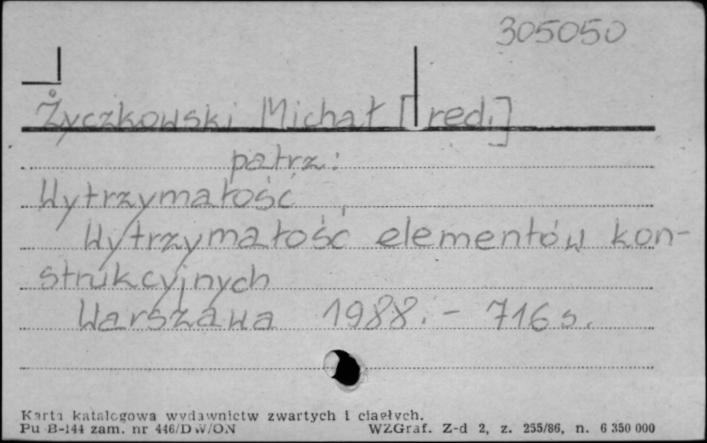 305050
Życzkowski Michał [red.]
patrz:
Wytrzymałość
Wytrzymałość elementów kon-
strukcyjnych
Warszawa 1988. - 716 s.
Karta katalogowa wydawnictw zwartych i ciągłych.
Pu B-144 zam. nr 446/DW/ON WZGraf. Z-d 2, z. 255/86, n. 6 350 000